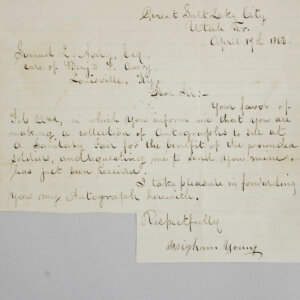 Great Salt Lake City
Utah Ter.
April 19th 1863.
Samuel L. Esq.
Care of Benj. F.
Louisville, Ky.
Dear Sir:-
Your favor of
Feb 22nd, in which you inform me that you are
making a collection of Autographs to sell at
a Sanitary Fair for the benefit of the wounded
soldiers, and requesting me to send you mine,
has just been received.
I take pleasure in forwarding
you my Autograph herewith.
Respectfully
Brigham Young